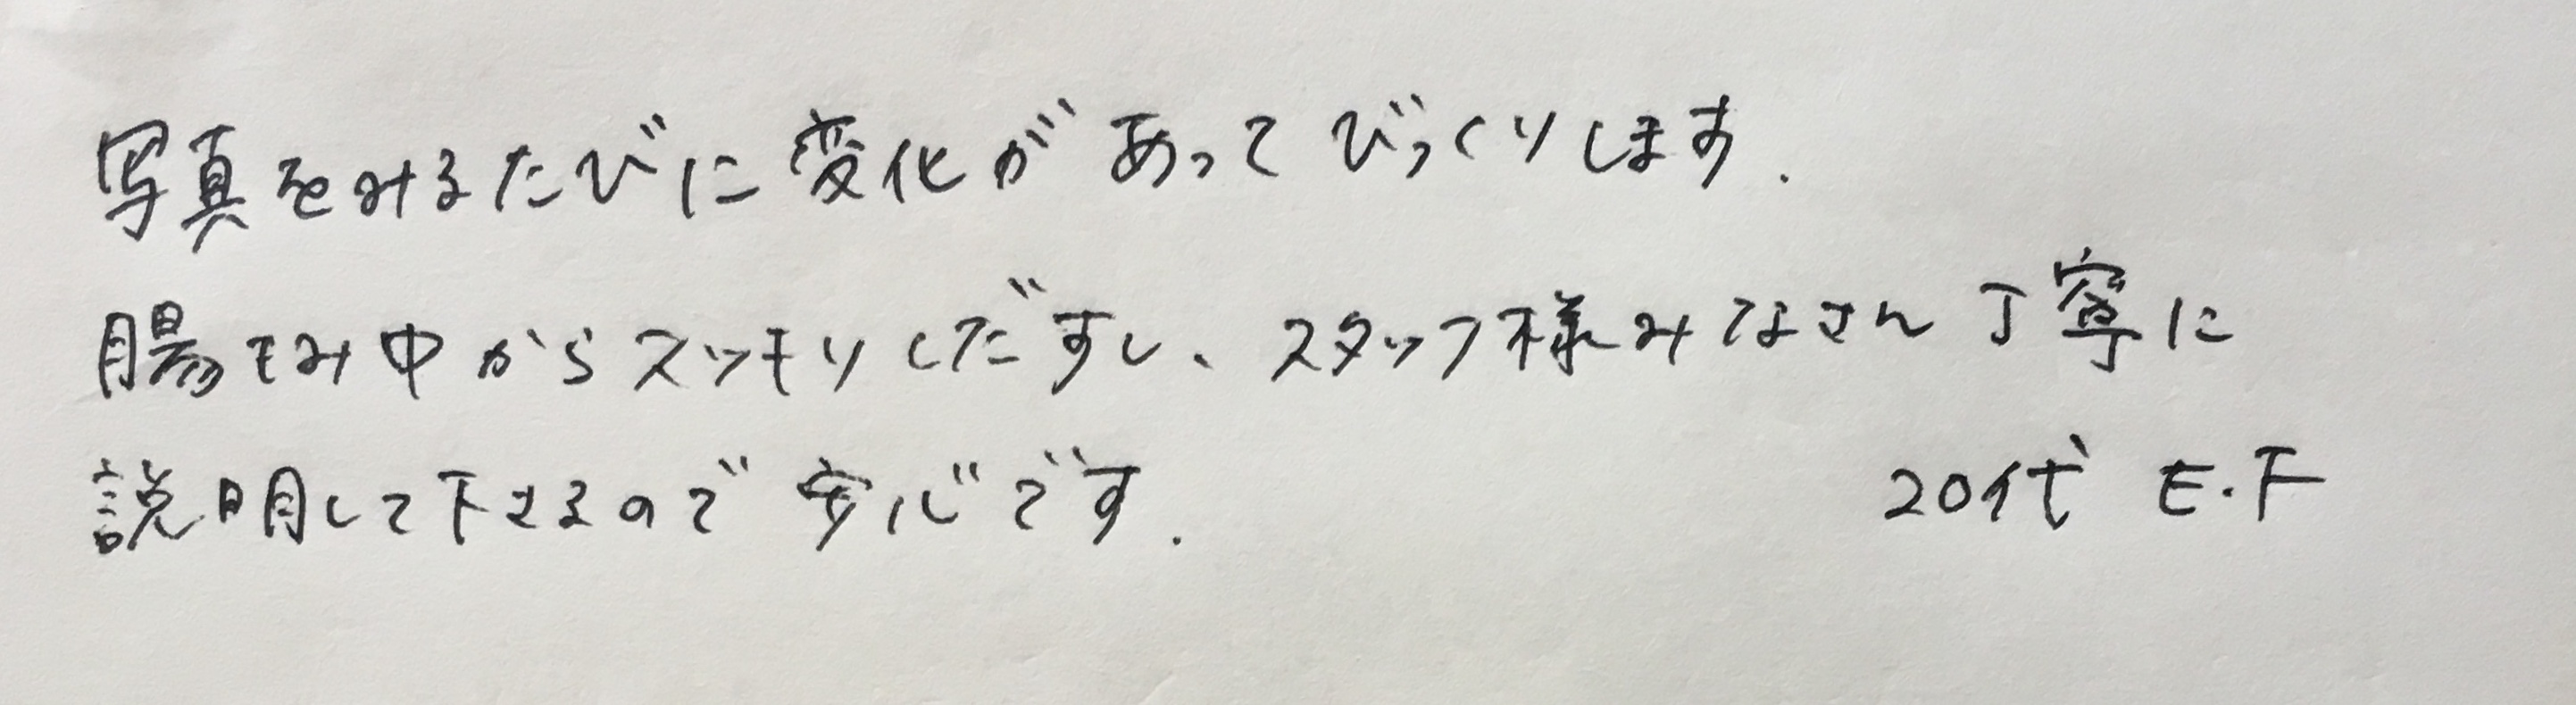 写真をみるたびに変化があってびっくりします.
腸もみ中からスッキリしだすし、スタッフ様みなさん丁寧に
説明して下さるので安心です.
20代 E.F